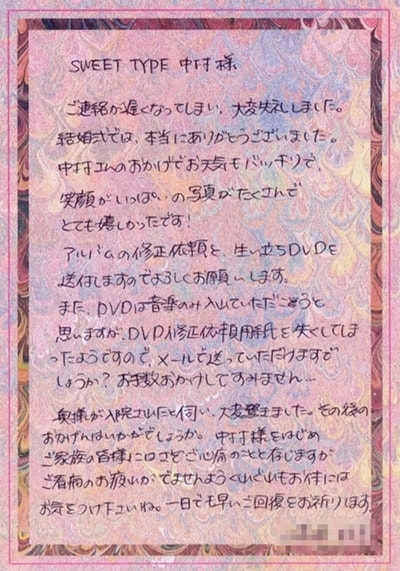 SWEET TYPE 中村様
ご連絡が遅くなってしまい、大変失礼しました。
結婚式では、本当にありがとうございました。
中村さんのおかげでお天気もバッチリで、
笑顔がいっぱいの写真がたくさんで
とても嬉しかったです!
アルバムの修正依頼と、生い立ちDVDを
送付しますのでよろしくお願いします。
また、DVDは音楽のみ入れていただこうと
思いますが、DVD修正依頼用紙を失くしてしま
ったようですので、メールで送っていただけますで
しょうか?お手数おかけしてすみません…
奥様が入院されたと伺い、大変驚きました。その後の
おかげんはいかがでしょうか。中村様をはじめ
ご家族の皆様にはさぞご心痛のことと存じますが
ご看病のお疲れがでませんようくれぐれもお体には
お気をつけ下さいね。一日でも早いご回復をお祈りします。